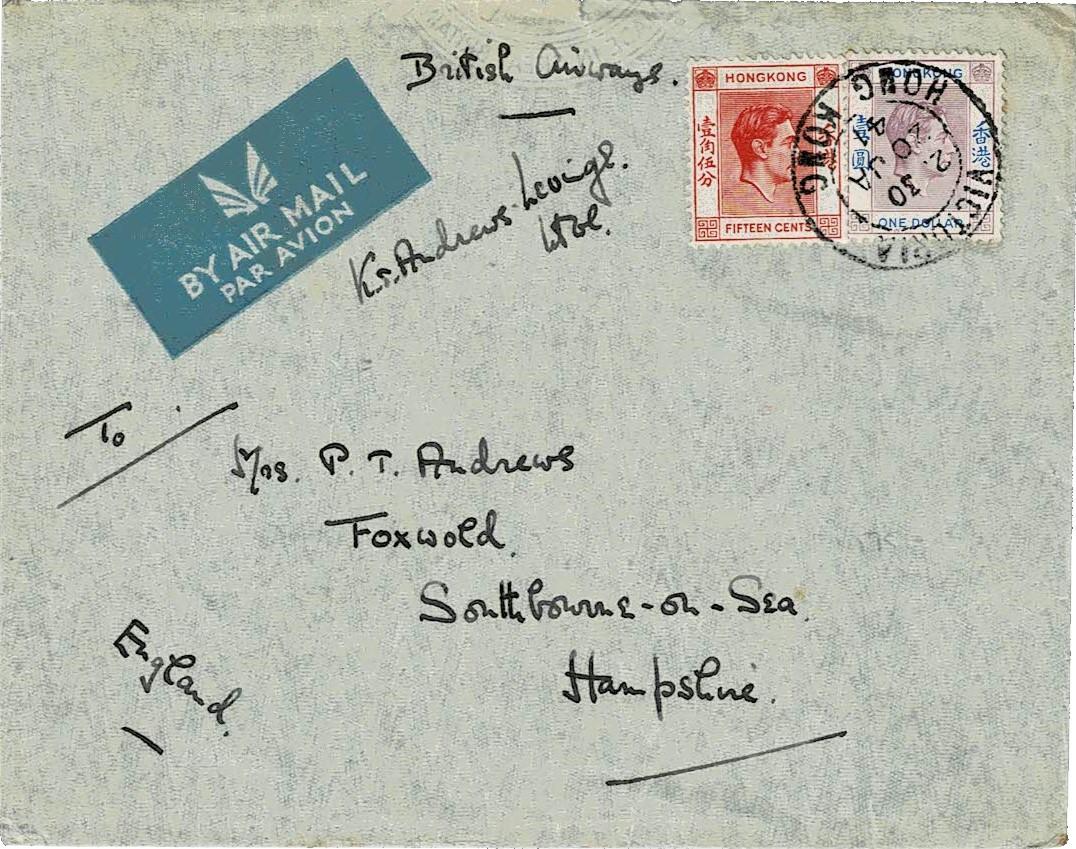 British Airways.
BY AIR MAIL
PAR AVION
K.T. Andrews-Levinge.
HONGKONG
壹角伍分
香港
FIFTEEN CENTS
HONGKONG
壹圓
香港
ONE DOLLAR
VICTORIA
HONG KONG
30 JA
To
Mrs. P. T. Andrews
Foxwold.
Southbourne-on-Sea.
Hampshire.
England.